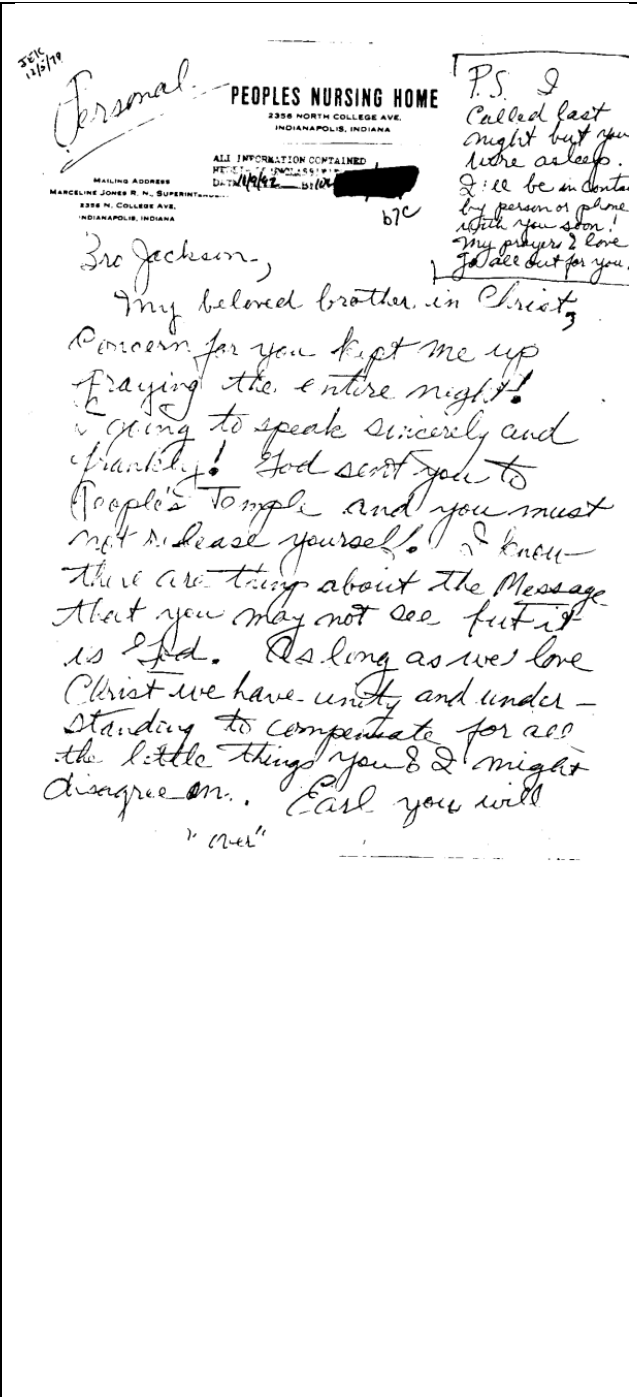 JEK
12/5/78
Personal
PEOPLES NURSING HOME
2356 NORTH COLLEGE AVE.
INDIANAPOLIS, INDIANA
ALL INFORMATION CONTAINED
b7C
MAILING ADDRESS
MARCELINE JONES R. N., SUPERINT
2356 N. COLLEGE AVE.
INDIANAPOLIS, INDIANA
P.S. I
Called last
night but you
were asleep.
I'll be in conta
by person or phone
with you soon!
My prayers & love
go all out for you.
Bro Jackson,
My beloved brother in Christ,
Concern for you kept me up
praying the entire night!
going to speak sincerely and
frankly! God sent you to
People's Temple and you must
not release yourself. I know
there are things about the Message
that you may not see but it
is God. As long as we love
Christ we have unity and under-
standing to compensate for all
the little things you & I might
disagree on. Earl you will
"over"